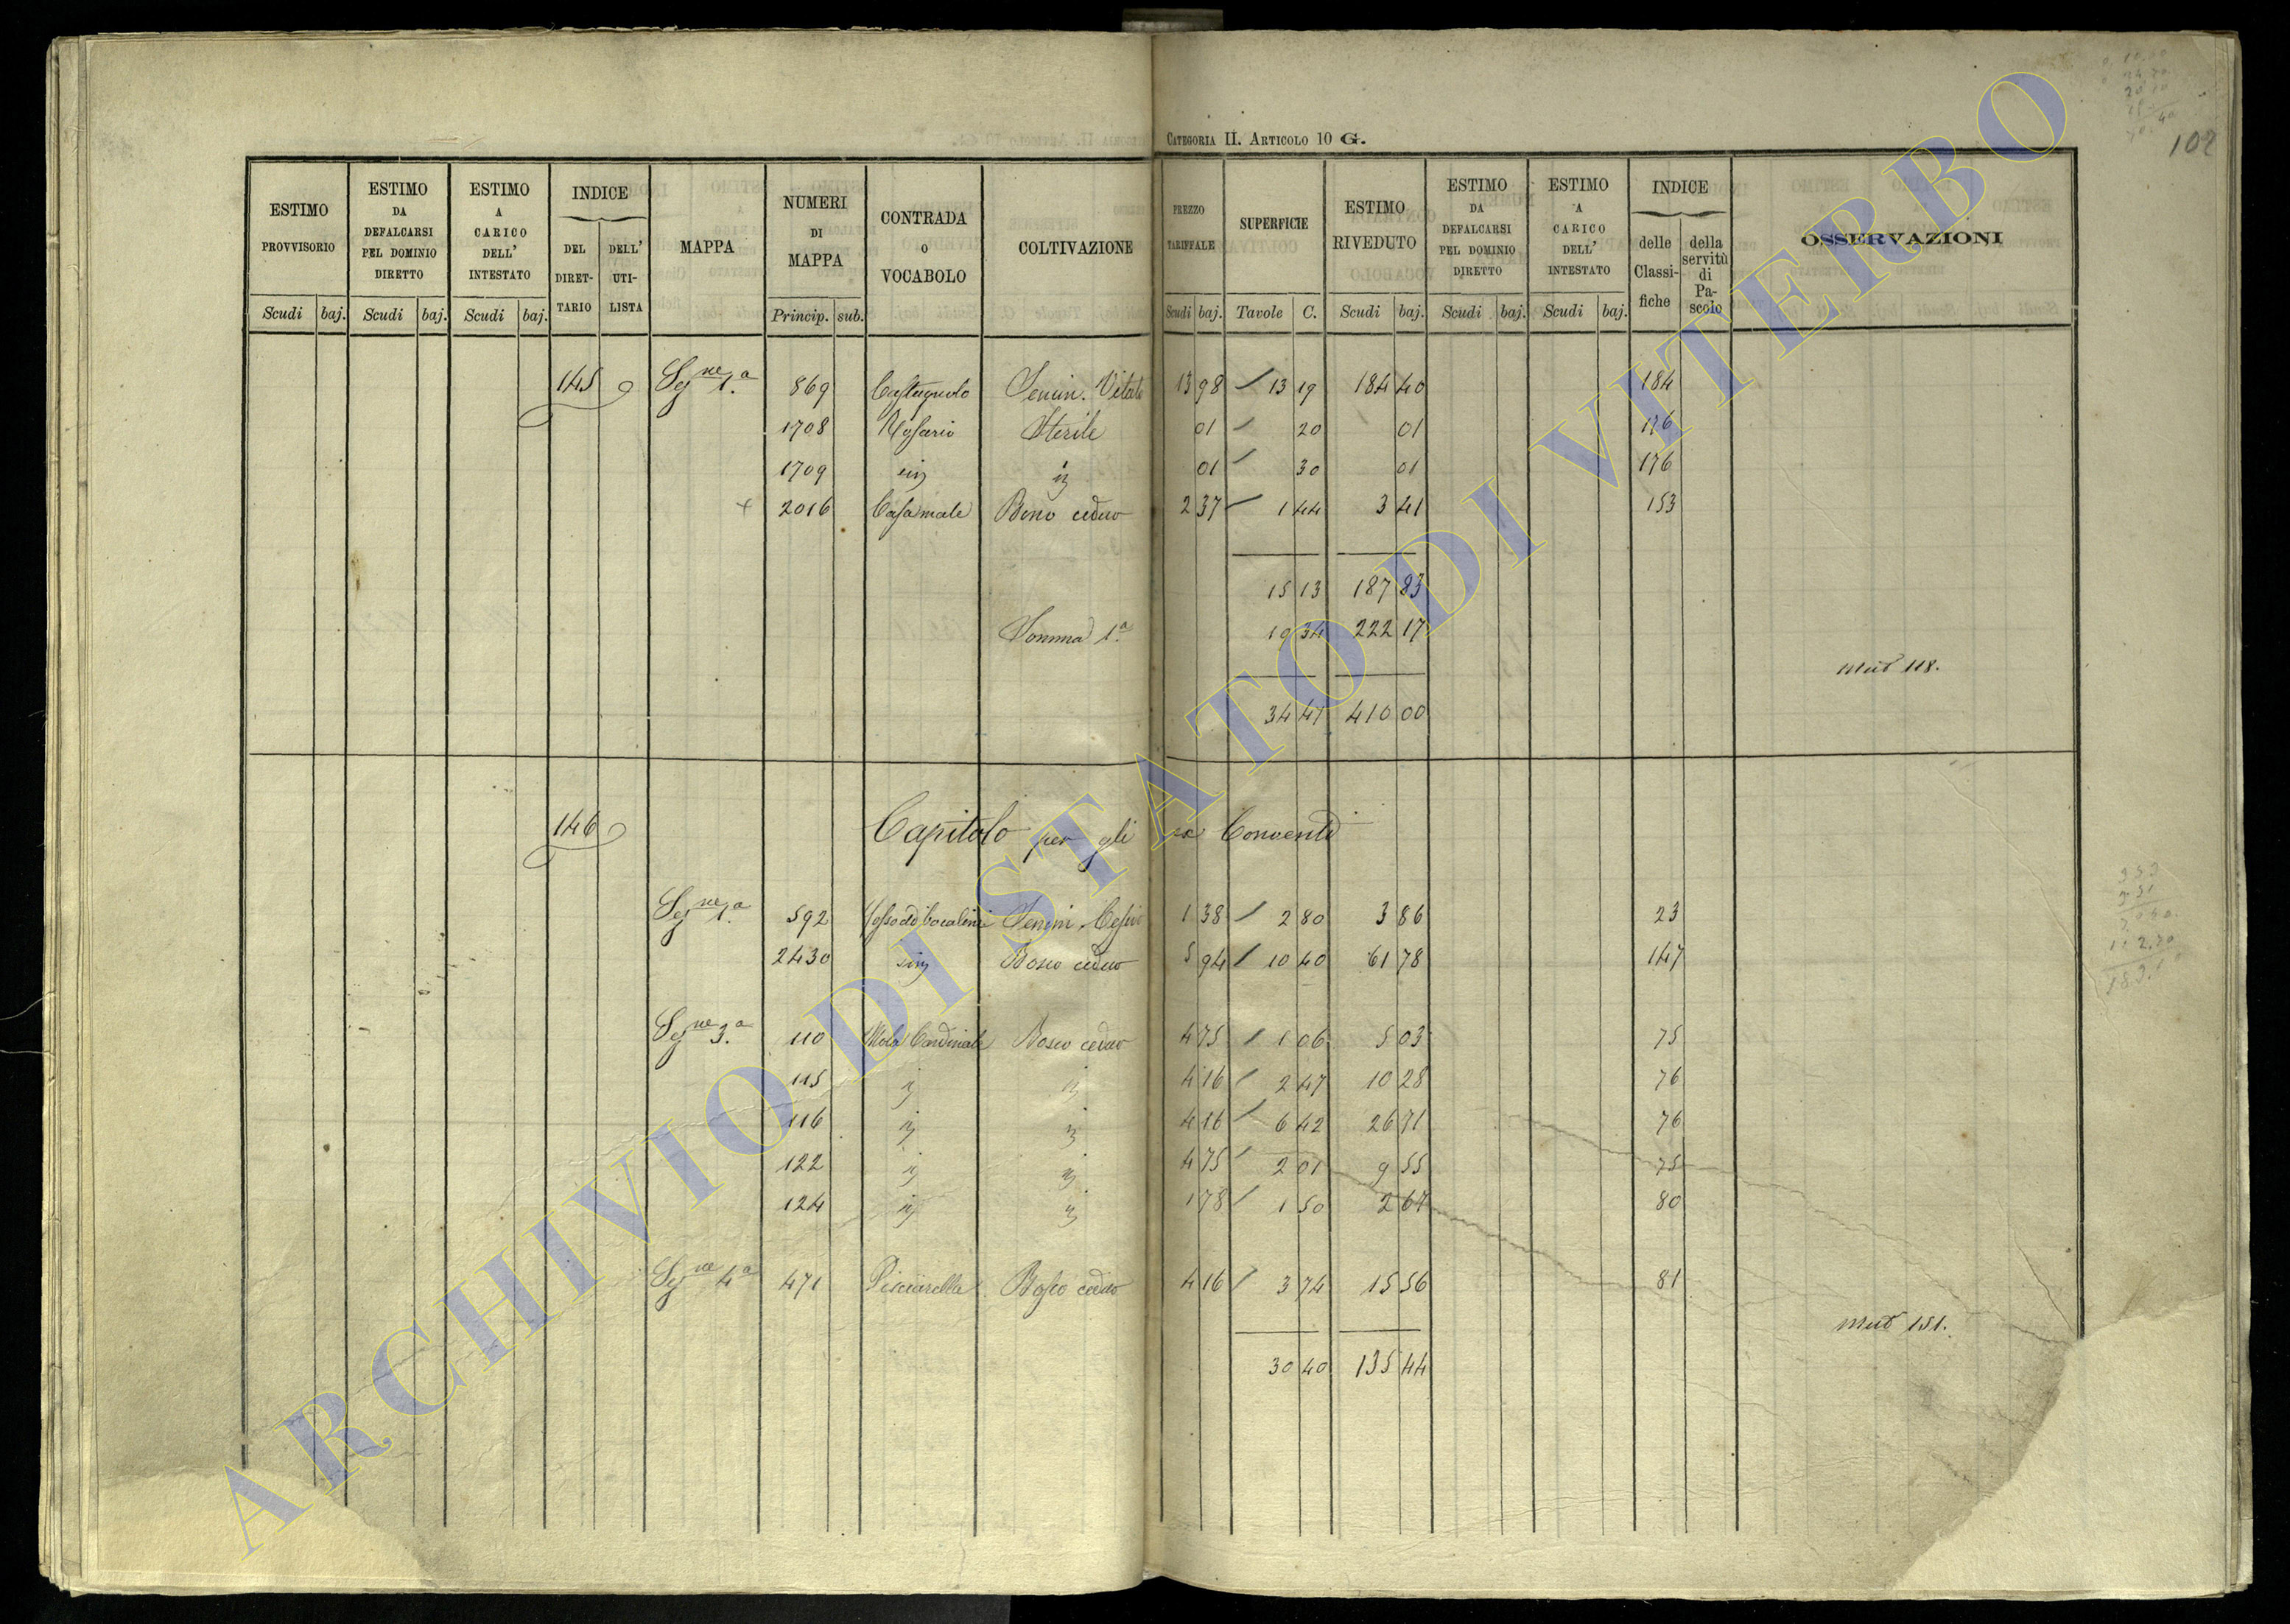 CATEGORIA II. ARTICOLO 10 G.
102
ESTIMO PROVVISORIO Scudi baj.
ESTIMO DA DEFALCARSI PEL DOMINIO DIRETTO Scudi baj.
ESTIMO A CARICO DELL' INTESTATO Scudi baj.
INDICE DEL DIRET-TARIO DELL' UTI-LISTA
MAPPA
NUMERI DI MAPPA Princip. sub.
CONTRADA O VOCABOLO
COLTIVAZIONE
PREZZO TARIFFALE Scudi baj.
SUPERFICIE Tavole C.
ESTIMO RIVEDUTO Scudi baj.
ESTIMO DA DEFALCARSI PEL DOMINIO DIRETTO Scudi baj.
ESTIMO A CARICO DELL' INTESTATO Scudi baj.
INDICE delle Classi-fiche della servitù di Pa-scolo
OSSERVAZIONI
145 Segne 1.a 869 Castagnolo Semin. Vitato 13 98 13 19 184 40 184
1708 Rosario Sterile 01 20 01 176
1709 01 30 01 176
+ 2016 Casamale ceduo 2 37 1 44 3 41 153
15 13 187 83
Somma 1.a 19 34 222 17
Mut 118.
34 47 410 00
146 Capitolo per gli ex Conventi
Segne 1.a 592 Semin. 1 38 2 80 3 86 23
2430 Bosco ceduo 5 94 10 40 61 78 147
Segne 3.a 110 Mola Cardinale Bosco ceduo 4 75 1 06 5 03 75
115 4 16 2 47 10 28 76
116 4 16 6 42 26 71 76
122 4 75 2 01 9 55 75
124 1 78 1 50 2 67 80
Segne 4a 471 Pisciarella Bosco ceduo 4 16 3 74 15 56 81
Mut 151.
30 40 135 44
ARCHIVIO DI STATO DI VITERBO